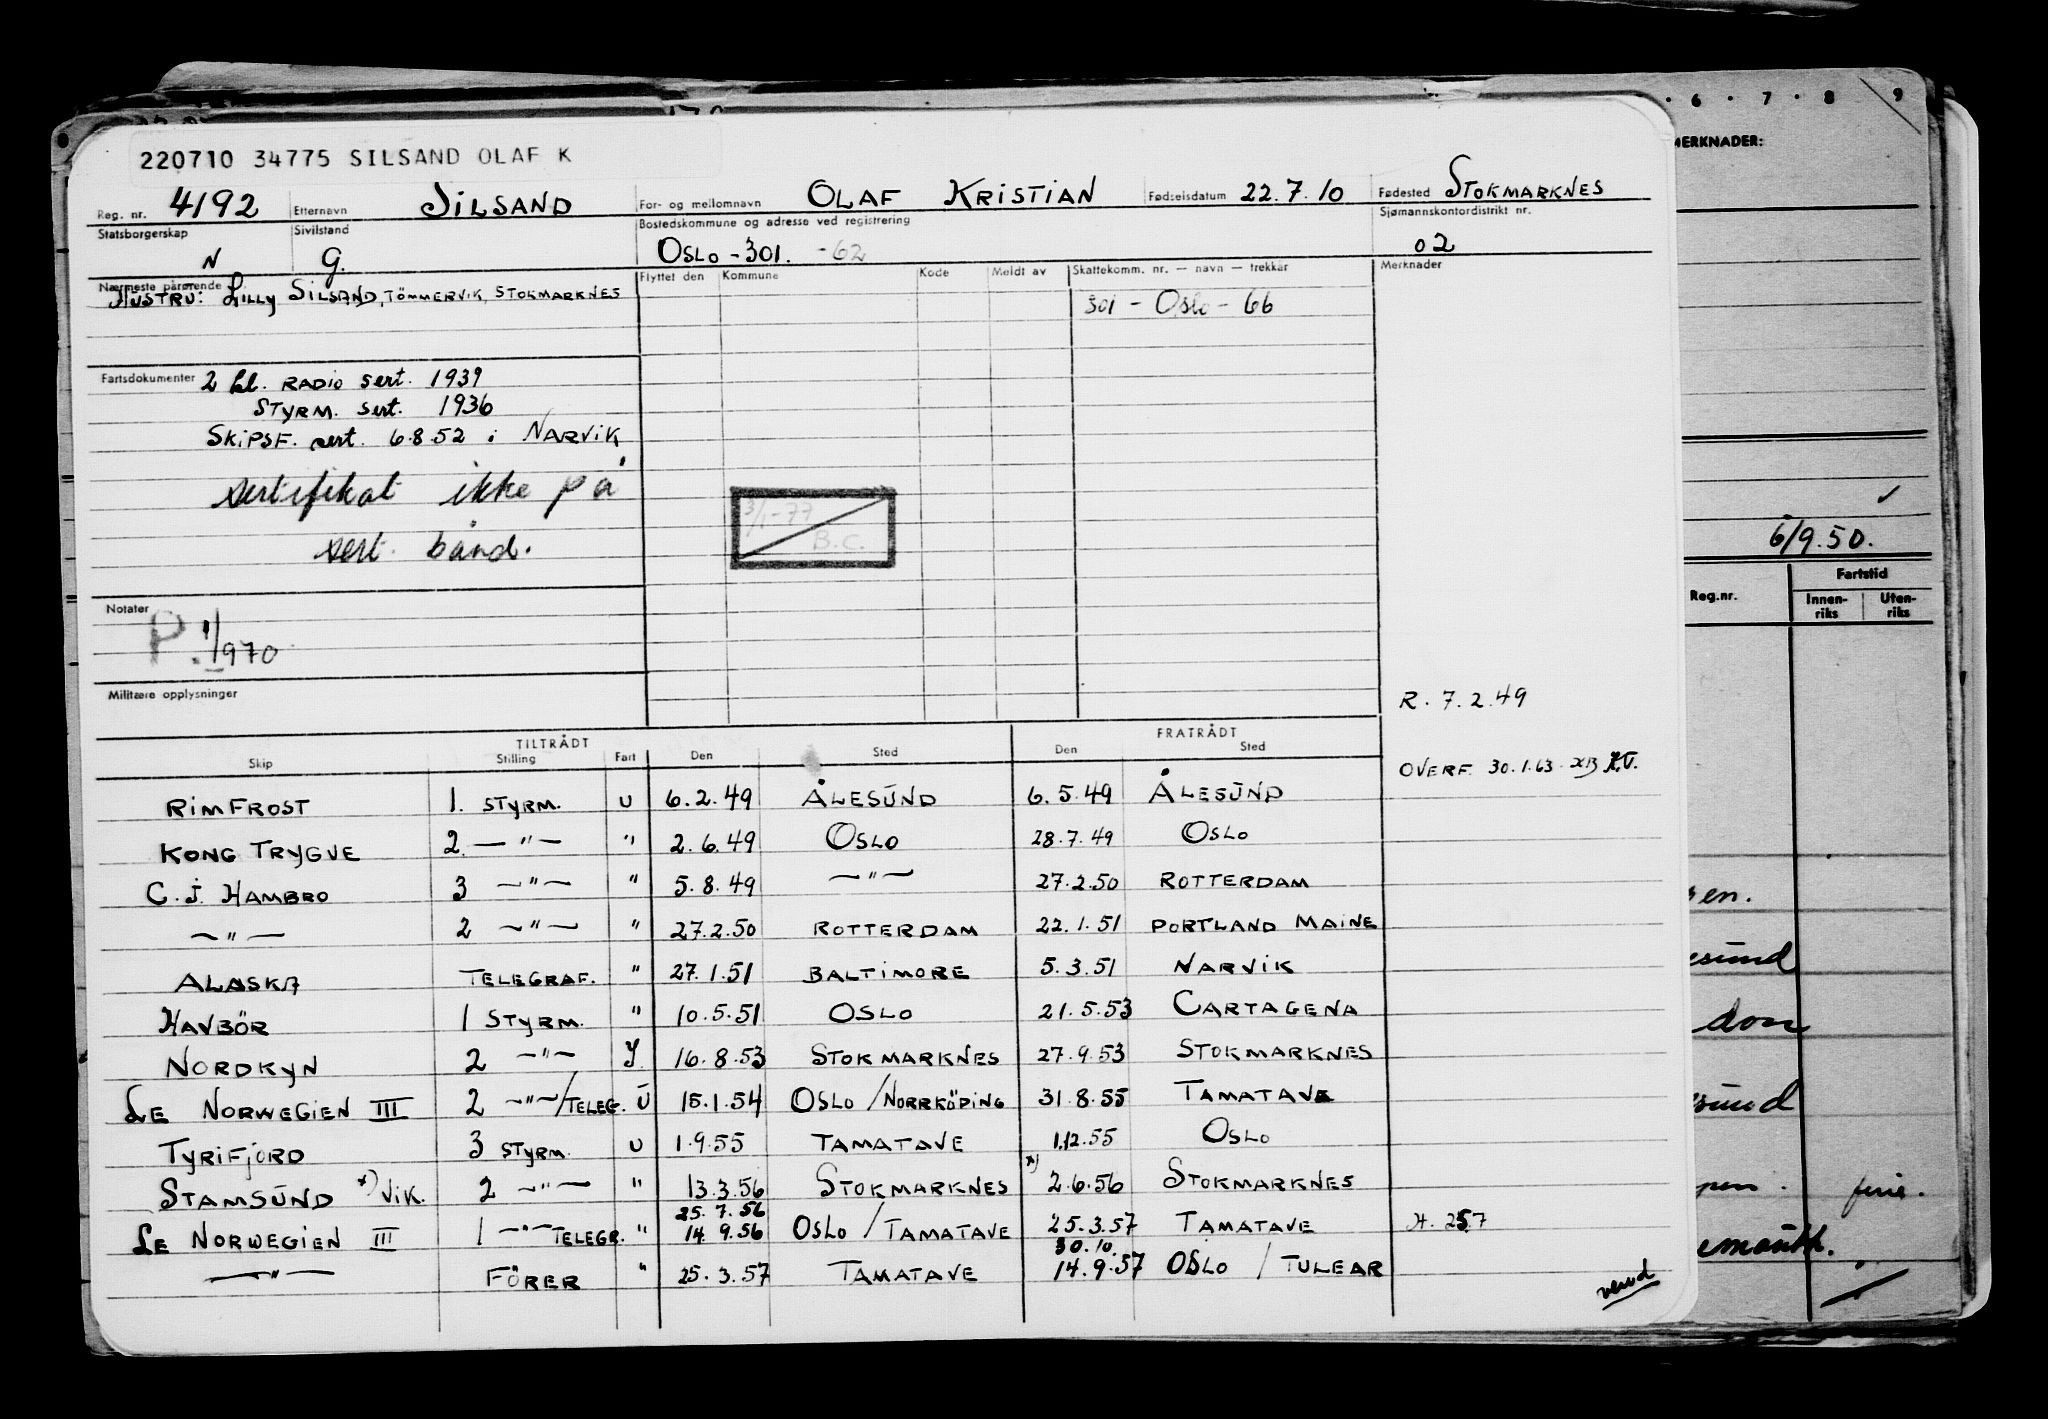 220710 34775 SILSAND OLAF K
Reg. nr. 4192 Etternavn SILSAND For- og mellomnavn OLAF KRISTIAN Fødselsdatum 22.7.10 Fødested STOKMARKNES
Statsborgerskap N Sivilstand G. Bostedskommune og adresse ved registrering OSLO-301. -62 Sjømannskontordistrikt nr. 02
Nærmeste pårørende HUSTRU: LILLY SILSAND, TÖMMERVIK, STOKMARKNES
Flyttet den Kommune Kode Meldt av Skattekomm. nr. — navn — trekkår Merknader
301 - Oslo - 66
Fartsdokumenter 2 kl. RADIO sert. 1939
STYRM. sert. 1936
SKIPSF. sert. 6.8.52 i NARVIK
sertifikat ikke på
sert. bånd.
3/1-77
B.C.
Notater
P. 1/1970
Militære opplysninger
R. 7.2.49
OVERF. 30.1.63
TILTRÅDT FRATRÅDT
Skip Stilling Fart Den Sted Den Sted
RIMFROST 1. STYRM. U 6.2.49 ÅLESUND 6.5.49 ÅLESUND
KONG TRYGVE 2. —"— " 2.6.49 OSLO 28.7.49 OSLO
C.J. HAMBRO 3 —"— " 5.8.49 —"— 27.2.50 ROTTERDAM
—"— 2 —"— " 27.2.50 ROTTERDAM 22.1.51 PORTLAND MAINE
ALASKA TELEGRAF. " 27.1.51 BALTIMORE 5.3.51 NARVIK
HAVBÖR 1 STYRM. " 10.5.51 OSLO 21.5.53 CARTAGENA
NORDKYN 2 —"— I 16.8.53 STOKMARKNES 27.9.53 STOKMARKNES
LE NORWEGIEN III 2 —"—/TELEG. U 15.1.54 OSLO/NORRKÖPING 31.8.55 TAMATAVE
TYRIFJORD 3 STYRM. U 1.9.55 TAMATAVE 1.12.55 OSLO
STAMSUND x) VIK. 2 —"— " 13.3.56 STOKMARKNES x) 2.6.56 STOKMARKNES
LE NORWEGIEN III 1 —"— TELEGR. " 25.7.56 14.9.56 OSLO / TAMATAVE 25.3.57 TAMATAVE H. 257
—"— FÖRER " 25.3.57 TAMATAVE 30.10. 14.9.57 OSLO / TULEAR
vend
6 . 7 . 8 9
MERKNADER:
6/9.50.
Reg.nr. Fartstid
Innen-riks Uten-riks
ferie.